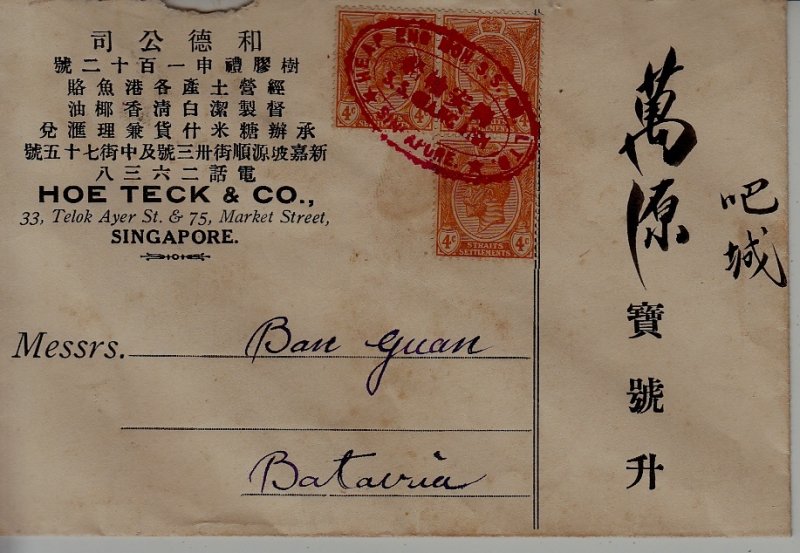 和德公司
樹膠禮申一百十二號
經營土產各港魚賂
督製潔白清香椰油
承辦糖米什貨兼理滙兌
新嘉坡源順街卅三號及中街七十五號
電話二六三八
HOE TECK & CO.,
33, Telok Ayer St. & 75, Market Street,
SINGAPORE.
HEAP ENG MOH S.S.
SINGAPORE.
4c
4c
4c 4c
STRAITS
SETTLEMENTS
Messrs. Ban Guan
Batavia
吧城
萬源寶號升